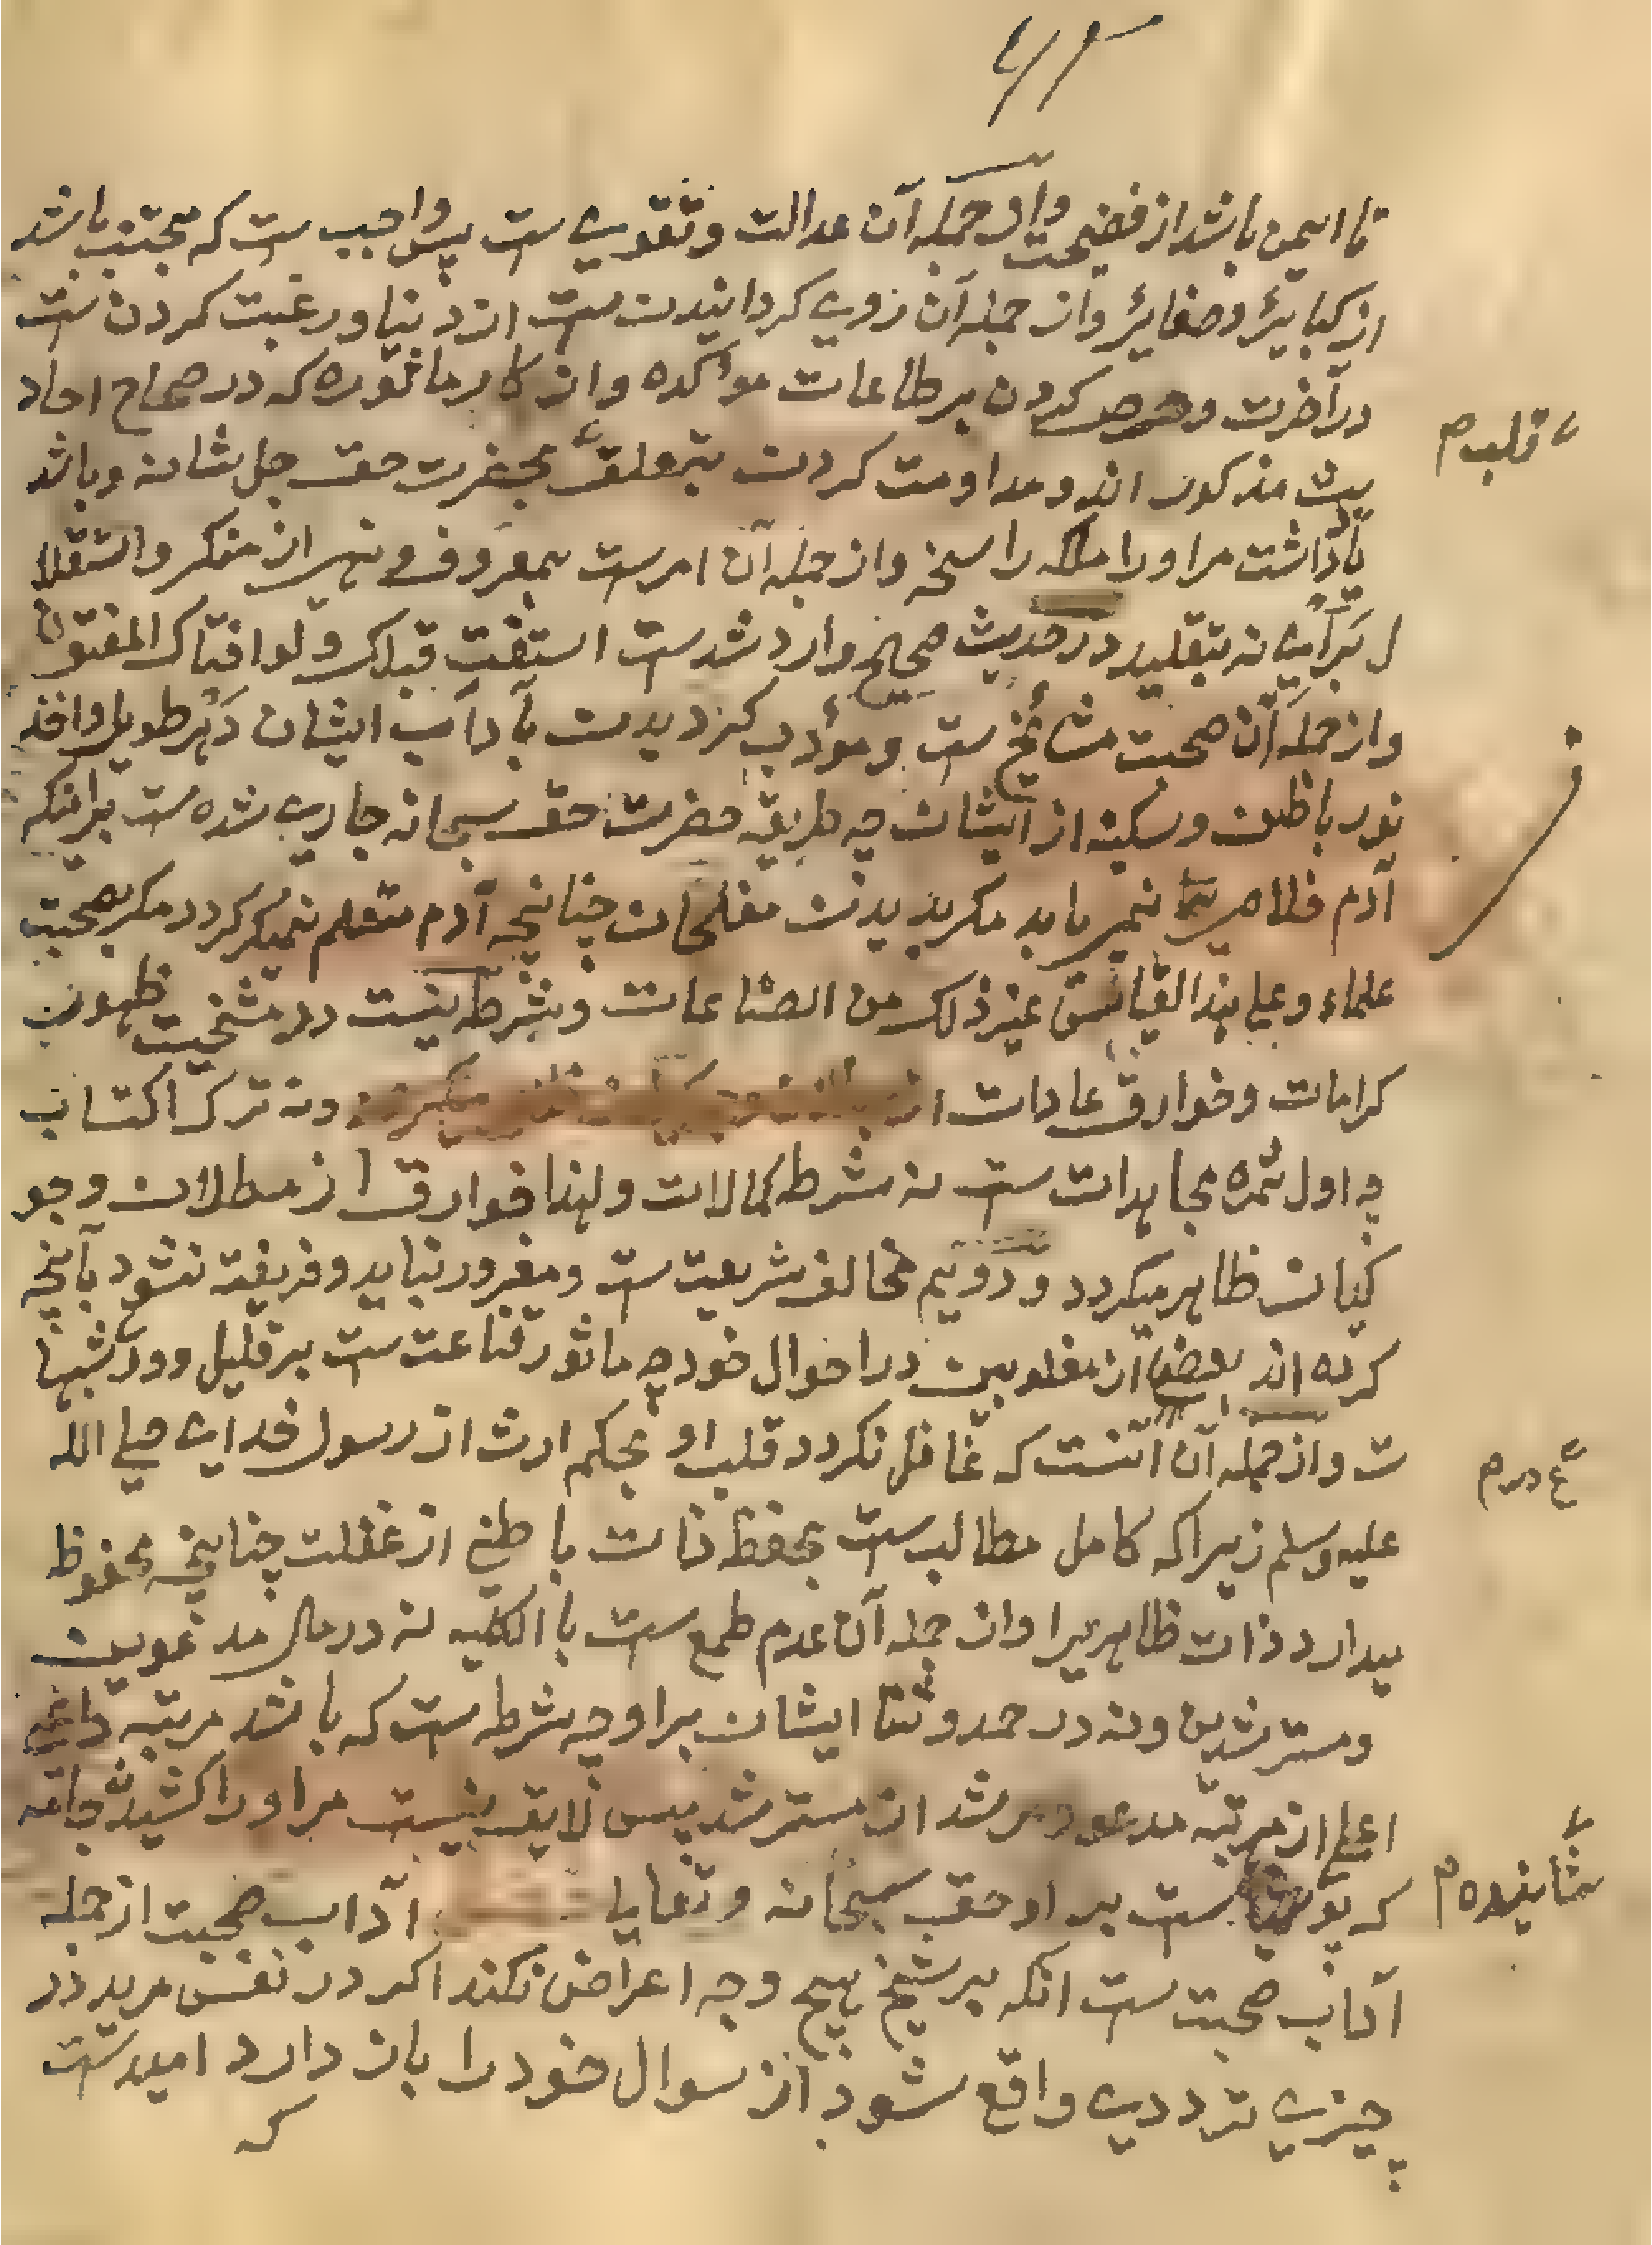 تا ایمن باشد از فضیحت و از جمله آن عدالت و تقوے ست پس واجب ست که مجتنب باشد
از کبایر و صغایر و از جمله آن روے کردانیدن ست از دنیا و رغبت کردن ست
در آخرت و حرص کردن بر طاعات موکده و اذکار ماثوره که در صحاح احاد
یث مذکور اند و مداومت کردن بتعلق بحضرت حق جل شانه و باشد
قلب م
یادداشت مر او را ملکه راسخه و از جمله آن امر ست بمعروف و نهی از منکر و استقلا
ل برأے نه بتقلید در حدیث صحیح وارد شد ست استفت قبلک و لو افتاک المفتون
و از جمله آن صحبت مشائخ ست و مؤدب کردیدن بآداب ایشان دهر طویل و اخذ
نور باطن و سکینه از ایشان چه طریقه حضرت حق سبحانه جاری شده ست برانکه
آدم فلاصی نمی یابد مکر بدیدن مفلحان چنانچه آدم متعلم نمیکردد مکر بصحبت
علماء و علی هذا القیاس غیر ذلک من الصناعات و شرط نیست در مشخیت ظهور
کرامات و خوارق عادات و نه ترک اکتساب
چه اول ثمره مجاهدات ست نه شرط کمالات و لهذا خوارق از مطلان و جو
کیان ظاهر میکردد و دویم مخالف شریعت ست و مغرور نباید و فریفته نشود بآنچه
کرده اند بعضی از مغلوبین در احوال خود چه ماثور قناعت ست بر قلیل و ورع شبها
ع در م
ت و از جمله آن آنست که غافل نکردد قلب او بحکم ارث از رسول خدای صلی الله
علیه و سلم زیرا که کامل مطالب ست بحفظ ذات باطنی از غفلت چنانچه محفوظ
میدارد ذات ظاهریرا و از جمله آن عدم طمع ست با الکلیه نه در مال مدعوین
و مسترشدین و نه در حمد و ثنا ایشان بر او چه شرط ست که باشد مرتبه داعی
اعلی از مرتبه مدعو و مرشد از مسترشد پس لایق نیست مر او را کشیدن جامه
که پوشانیده ست بر او حق سبحانه و تعالی آداب صحبت از جمله
شانیده م
آداب صحبت ست انکه بر شیخ بهیچ وجه اعراض نکند اکر در نفس مرید در
چیزے ترددے واقع شود از سوال خود را باز دارد امید ست
که